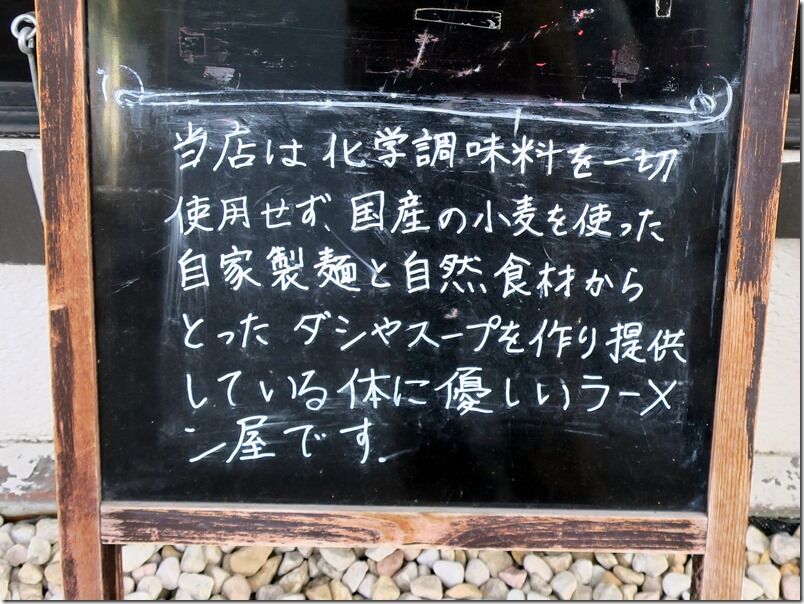 当店は化学調味料を一切
使用せず、国産の小麦を使った
自家製麺と自然食材から
とったダシやスープを作り提供
している体に優しいラーメ
ン屋です.